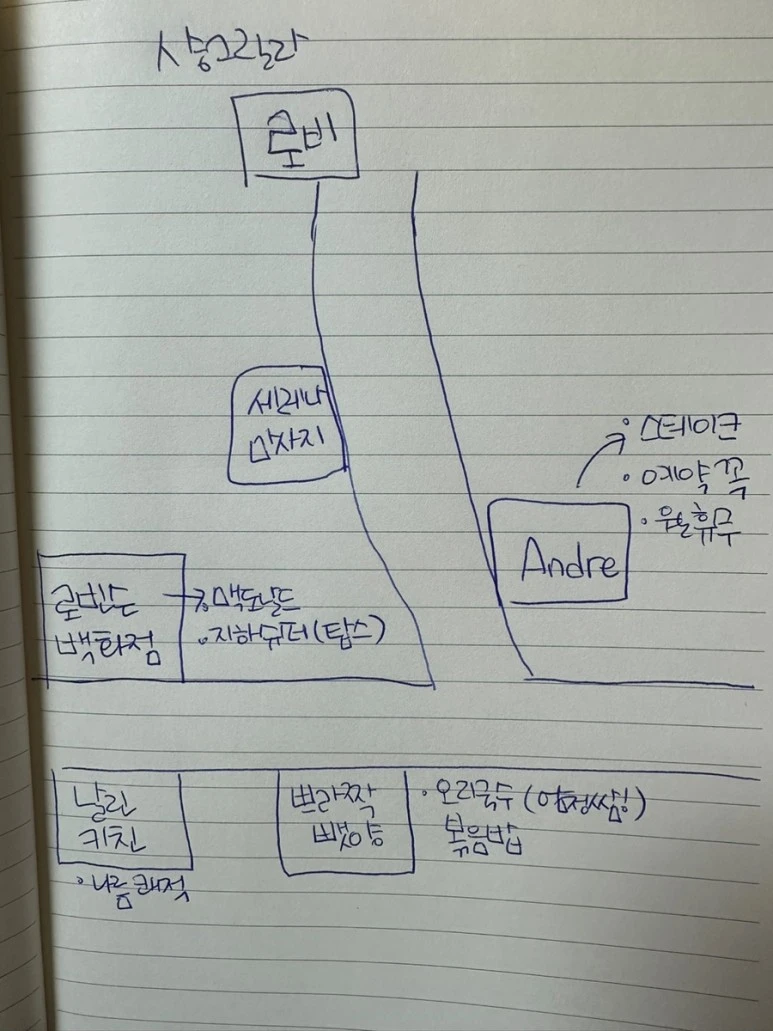 샹그릴라
로비
세레나
마사지
· 스테이크
· 예약 꼭
· 월휴무
Andre
로빈슨
백화점
· 맥도날드
· 지하슈퍼(탑스)
날린
키친
· 나름 쾌적
쁘라짝
뻿양
· 오리국수 (양정쌈!)
볶음밥